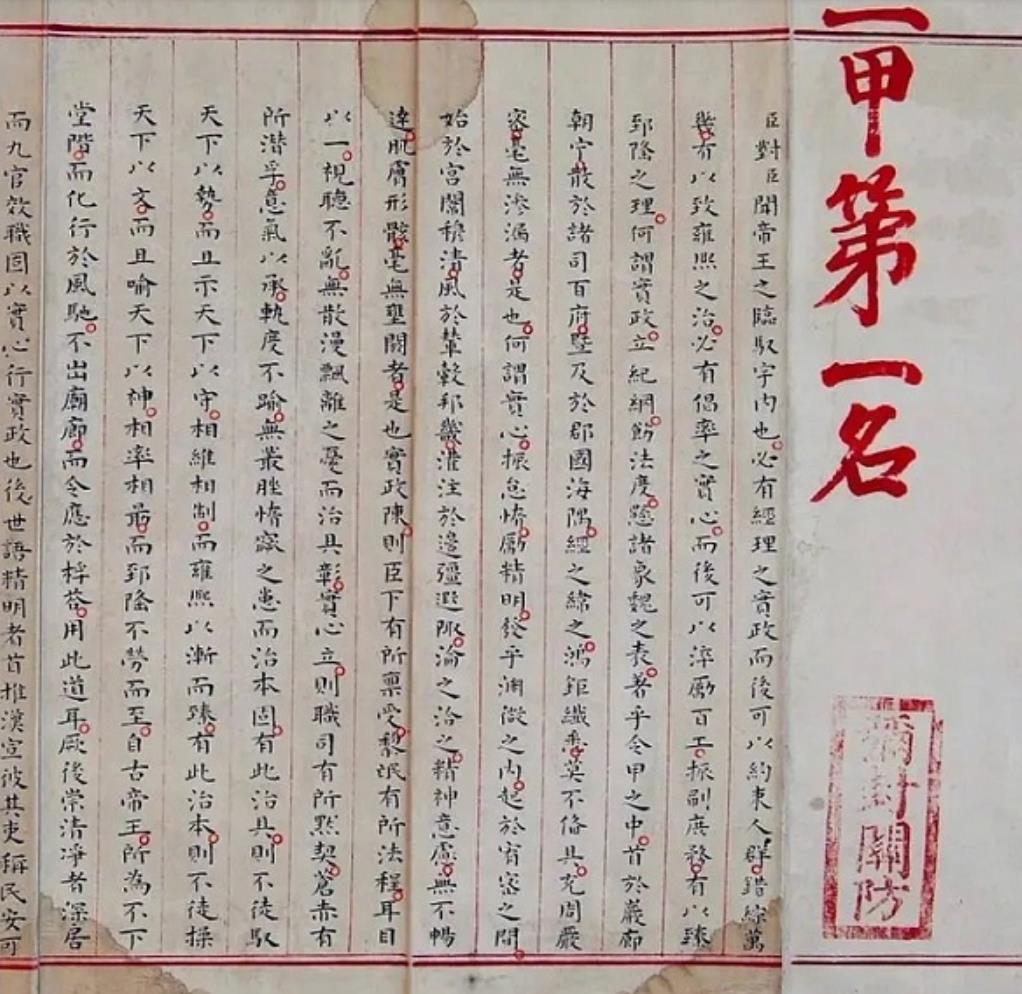 一甲第一名
彌封關防
臣對臣聞帝王之臨馭宇內也必有經理之實政而後可以約束人群錯綜萬
幾有以致雍熙之治必有倡率之實心而後可以淬勵百工振刷庶務有以臻
郅隆之理何謂實政立紀綱飭法度懸諸象魏之表著乎令甲之中首於巖廊
朝宁散於諸司百府暨及於郡國海隅經之緯之鴻鉅纖悉莫不備具充周嚴
密毫無滲漏者是也何謂實心振怠惰勵精明發乎淵微之內起於宥密之間
始於宮闈穆清風於輦轂邦畿灌注於邊疆遐陬淪之洽之精神意慮無不暢
達肌膚形骸毫無壅閼者是也實政陳則臣下有所稟受黎氓有所法程耳目
以一視聽不亂無散漫飄離之憂而治具彰實心立則職司有所默契蒼赤有
所潛孚意氣以承軌度不踰無叢脞惰窳之患而治本固有此治具則不徒馭
天下以勢而且示天下以守相維相制而雍熙以漸而臻有此治本則不徒操
天下以文而且喻天下以神相率相最而郅隆不勞而至自古帝王所為不下
堂階而化行於風馳不出廟廊而令應於桴荅用此道耳厥後崇清凈者深居
而九官效職固以實心行實政也後世語精明者首推漢宣彼其吏稱民安可